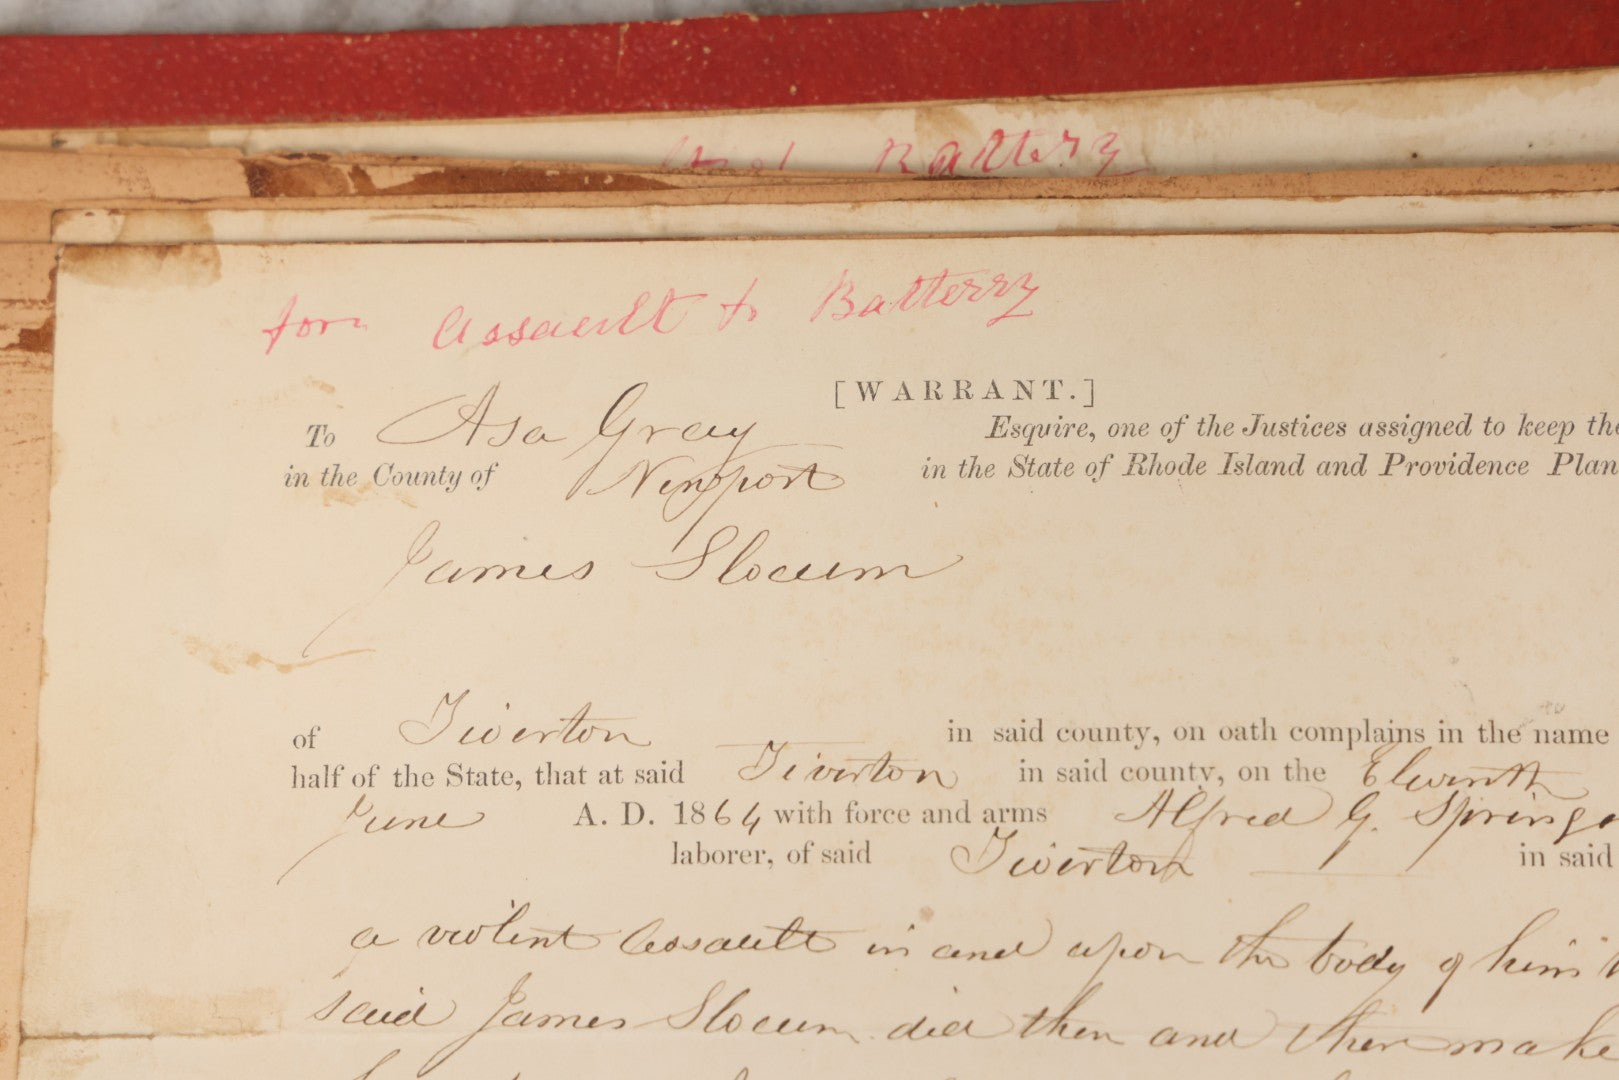 Battery
form Assault & Batterry
[WARRANT.]
To Asa Gray Esquire, one of the Justices assigned to keep the
in the County of Newport in the State of Rhode Island and Providence Plan
James Slocum
of Tiverton in said county, on oath complains in the name
half of the State, that at said Tiverton in said county, on the Elevinth
June A. D. 1864 with force and arms Alfred G. Springe
laborer, of said Tiverton in said
a violent Assault in and upon the body of him
said James Slocum did then and there make